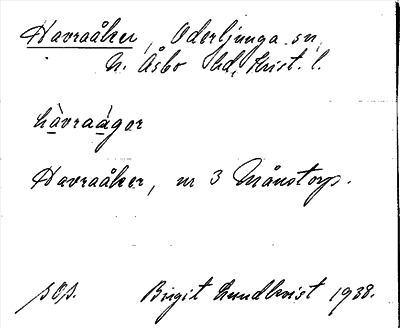 Havraåker, Oderljunga sn,
N. Åsbo hd, Krist. l.
hàvraágɘr
Havraåker, nr 3 Månstorp.
sös. Birgit Lundkvist 1938.